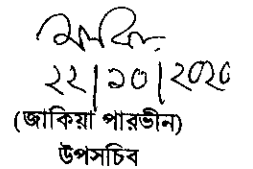 ২২/১০/২০২০
(জাকিয়া পারভীন)
উপসচিব